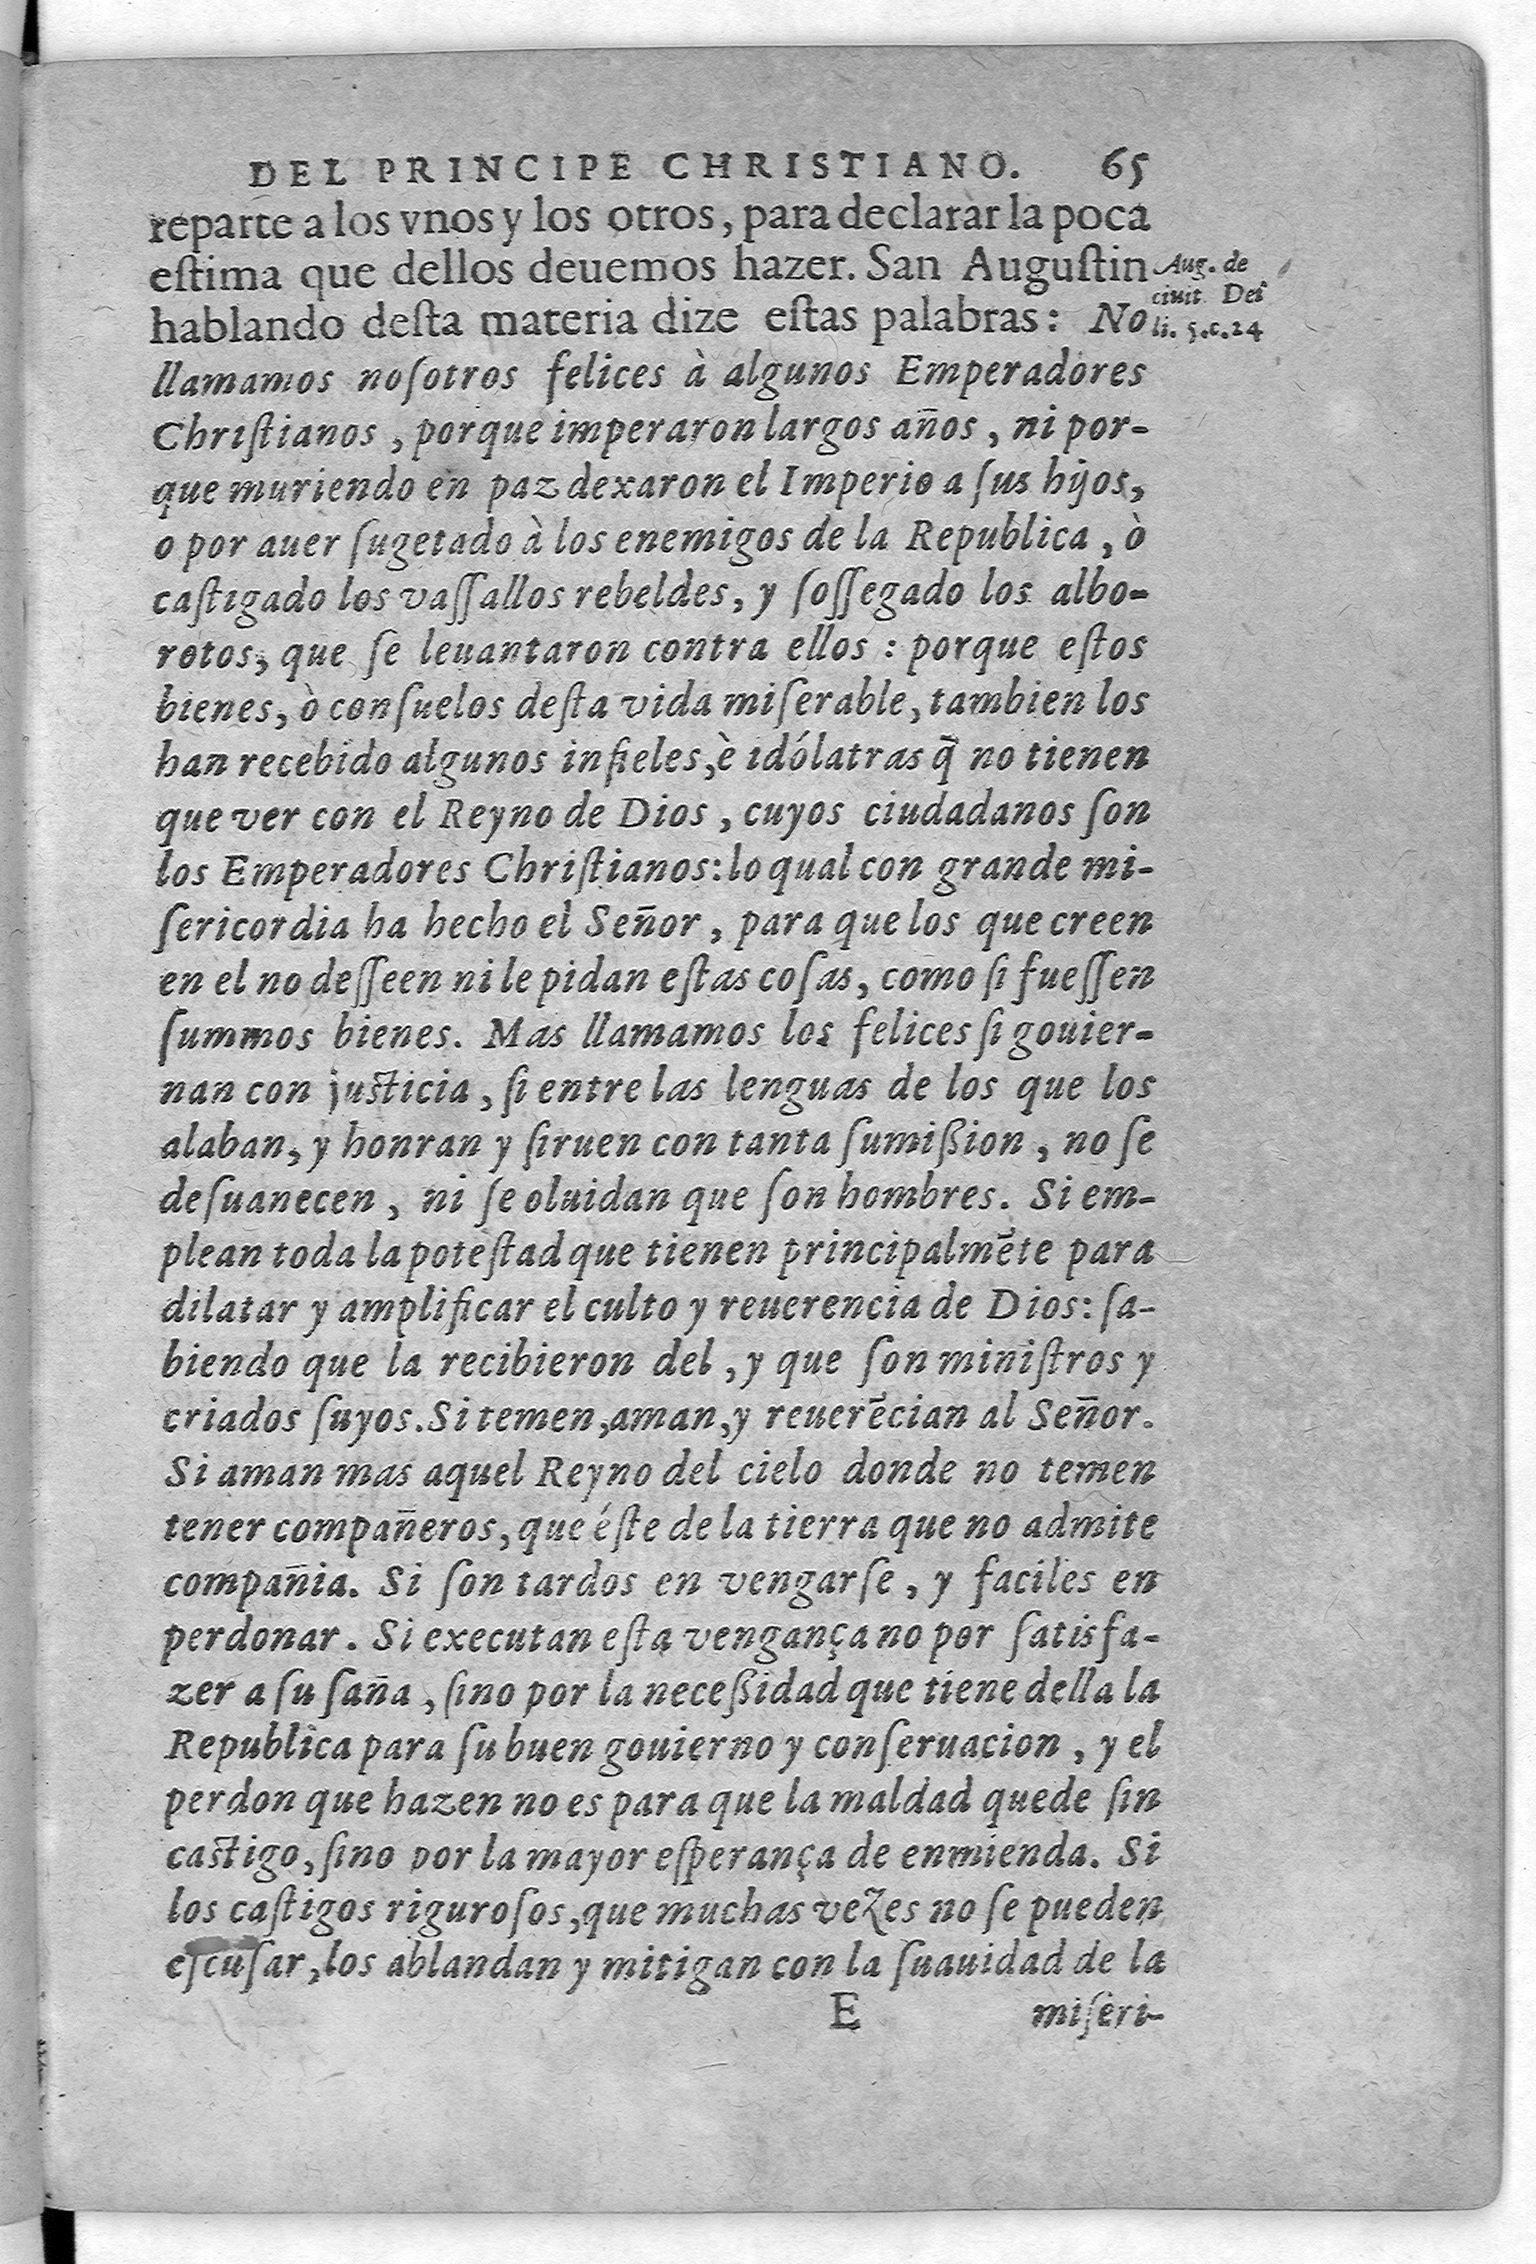 DEL PRINCIPE CHRISTIANO. 65
reparte a los vnos y los otros, para declarar la poca
eſtima que dellos deuemos hazer. San Auguſtin
hablando deſta materia dize eſtas palabras: No
Aug. de
ciuit. Dei
li. 5.c.24
llamamos noſotros felices à algunos Emperadores
Chriſtianos, porque imperaron largos años, ni por-
que muriendo en paz dexaron el Imperio a ſus hijos,
o por auer ſugetado à los enemigos de la Republica, ò
caſtigado los vaſſallos rebeldes, y ſoſſegado los albo-
rotos, que ſe leuantaron contra ellos: porque eſtos
bienes, ò conſuelos deſta vida miſerable, tambien los
han recebido algunos infieles, è idólatras q̃ no tienen
que ver con el Reyno de Dios, cuyos ciudadanos ſon
los Emperadores Chriſtianos: lo qual con grande mi-
ſericordia ha hecho el Señor, para que los que creen
en el no deſſeen ni le pidan eſtas coſas, como ſi fueſſen
ſummos bienes. Mas llamamos los felices ſi gouier-
nan con juſticia, ſi entre las lenguas de los que los
alaban, y honran y ſiruen con tanta ſumißion, no ſe
deſuanecen, ni ſe oluidan que ſon hombres. Si em-
plean toda la poteſtad que tienen principalmẽte para
dilatar y amplificar el culto y reuerencia de Dios: ſa-
biendo que la recibieron del, y que ſon miniſtros y
criados ſuyos. Si temen, aman, y reuerẽcian al Señor.
Si aman mas aquel Reyno del cielo donde no temen
tener compañeros, que éſte de la tierra que no admite
compañia. Si ſon tardos en vengarſe, y faciles en
perdonar. Si executan eſta vengança no por ſatisfa-
zer a ſu ſaña, ſino por la neceßidad que tiene della la
Republica para ſu buen gouierno y conſeruacion, y el
perdon que hazen no es para que la maldad quede ſin
caſtigo, ſino por la mayor eſperança de enmienda. Si
los caſtigos riguroſos, que muchas vezes no ſe pueden
eſcuſar, los ablandan y mitigan con la ſuauidad de la
E miſeri-